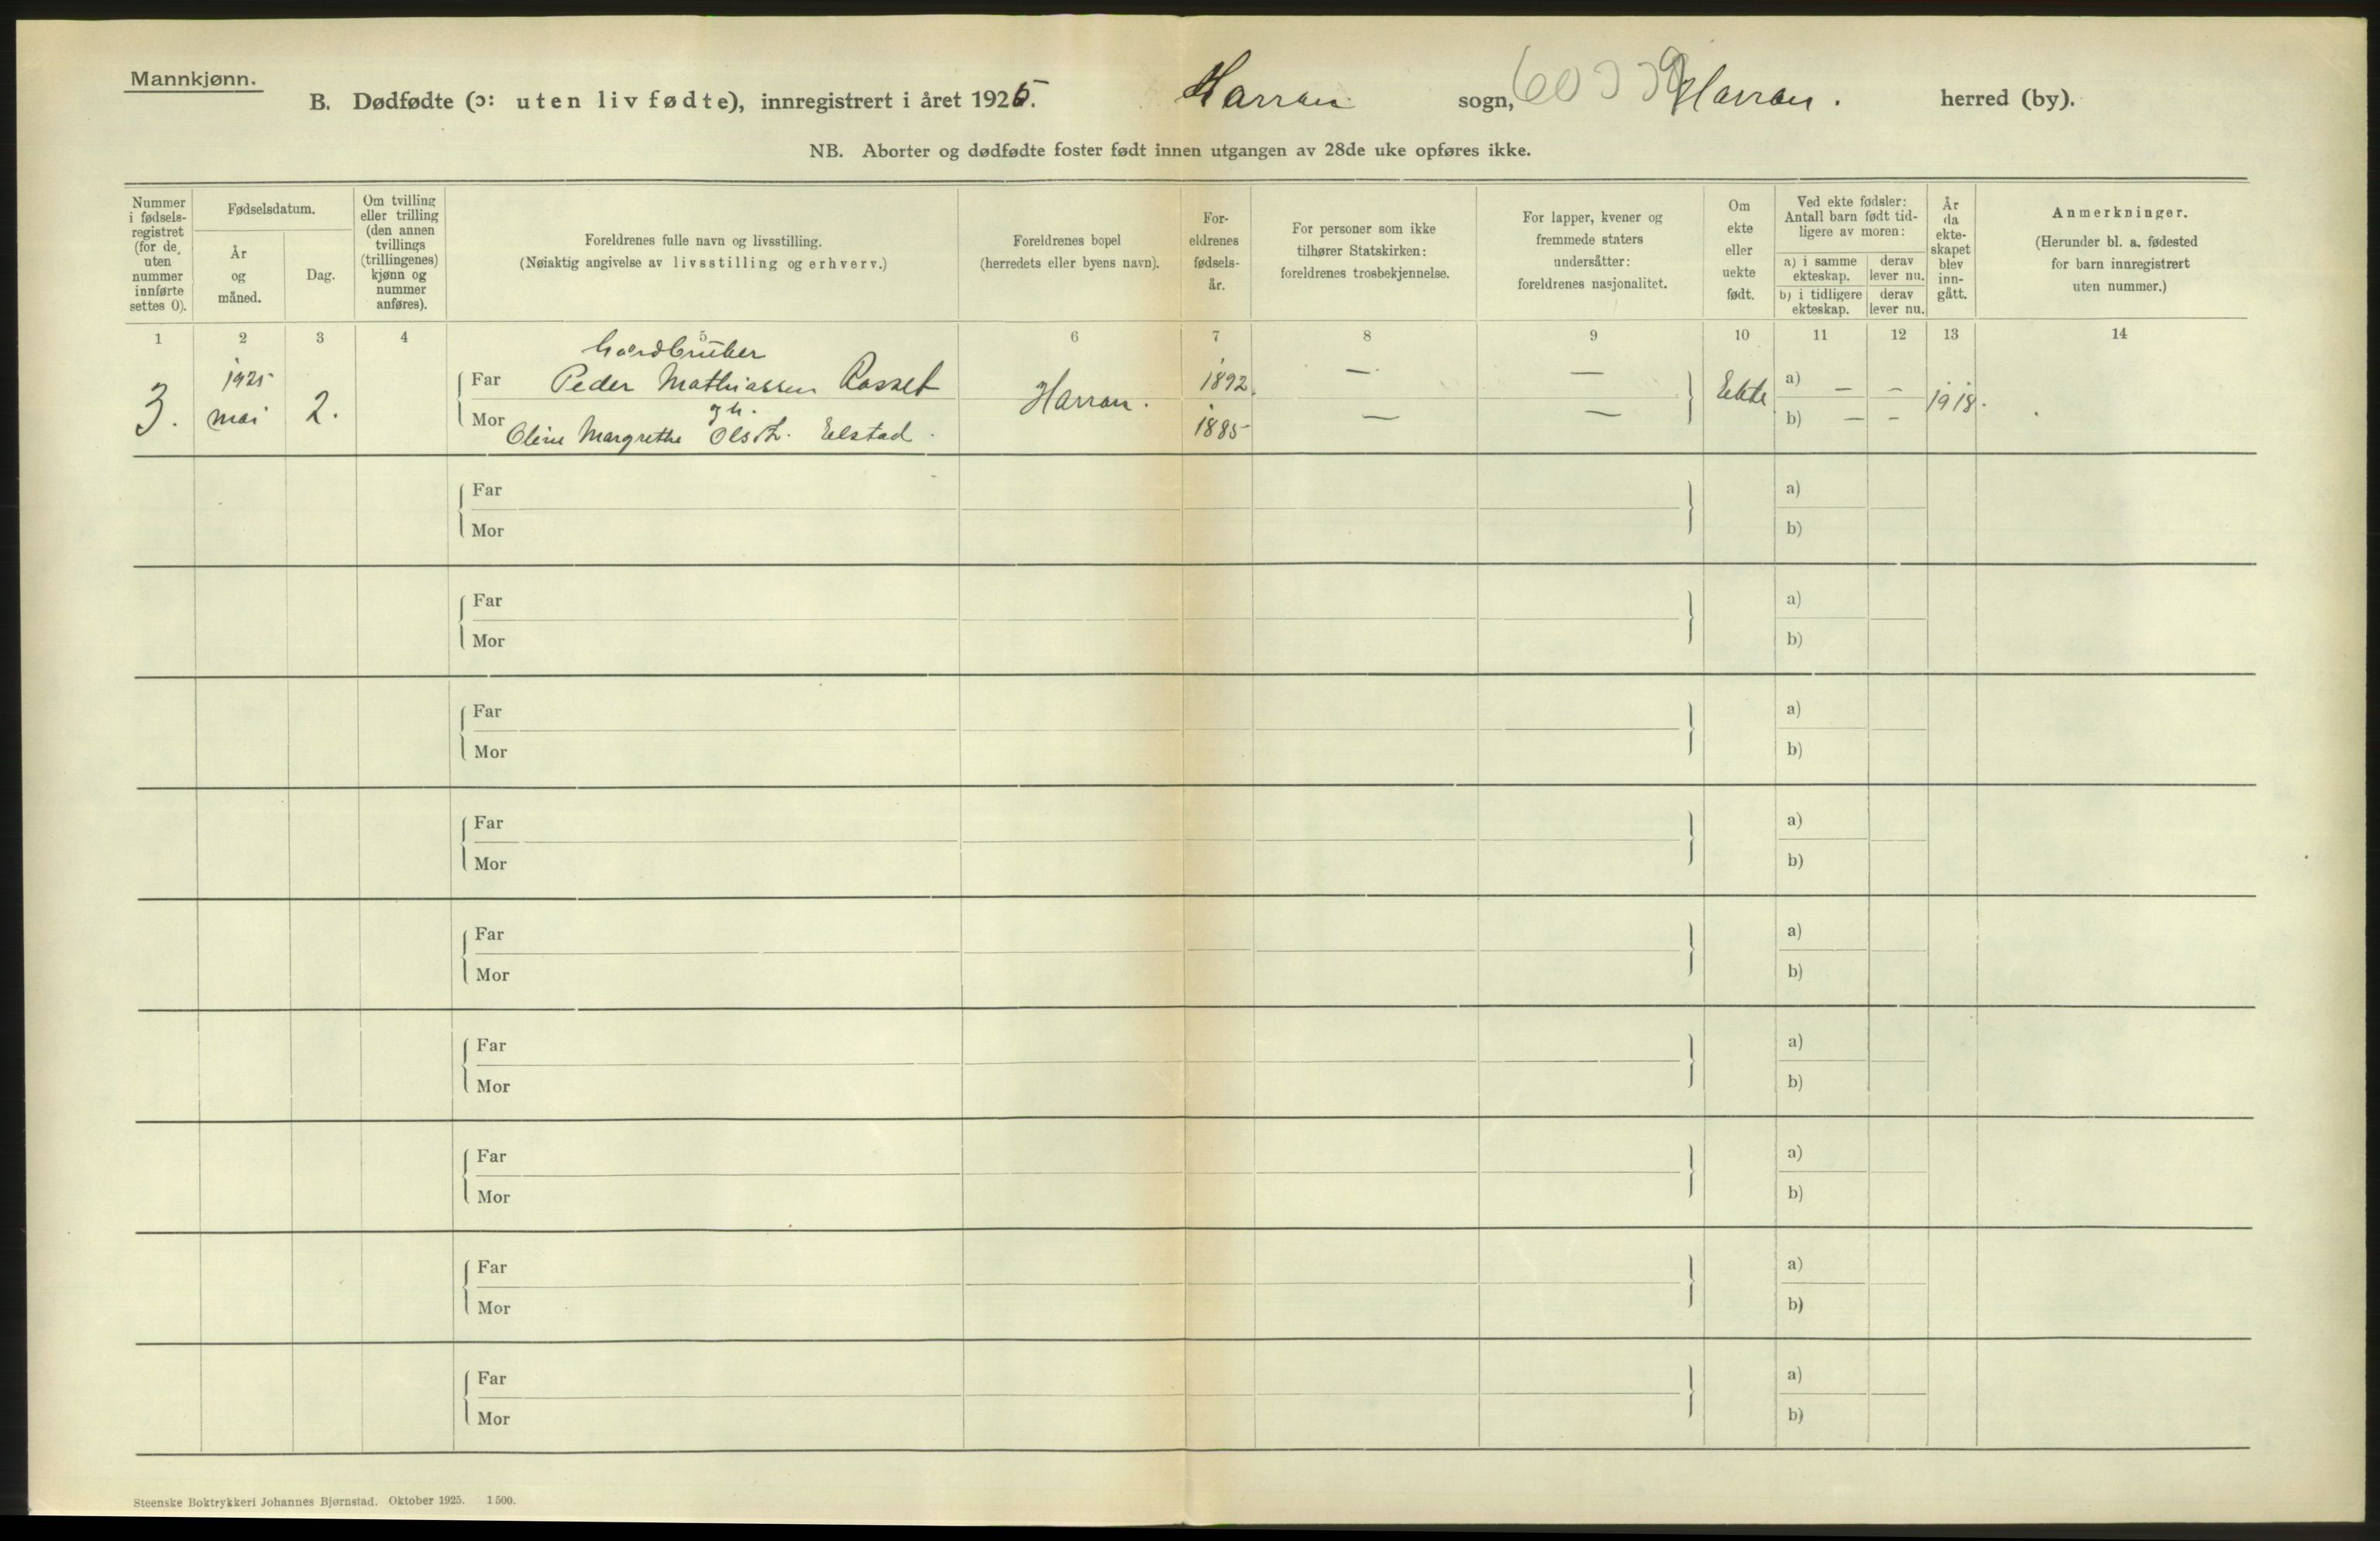 Mannkjønn.
B. Dødfødte (ɔ: uten liv fødte), innregistrert i året 1925. Harran sogn, Harran. herred (by).
NB. Aborter og dødfødte foster født innen utgangen av 28de uke opføres ikke.
Nummer
i fødsels-
registret
(for de
uten
nummer
innførte
settes 0).
Fødselsdatum.
År
og
måned.
Dag.
Om tvilling
eller trilling
(den annen
tvillings
(trillingenes)
kjønn og
nummer
anføres).
Foreldrenes fulle navn og livsstilling.
(Nøiaktig angivelse av livsstilling og erhverv.)
Foreldrenes bopel
(herredets eller byens navn).
For-
eldrenes
fødsels-
år.
For personer som ikke
tilhører Statskirken:
foreldrenes trosbekjennelse.
For lapper, kvener og
fremmede staters
undersåtter:
foreldrenes nasjonalitet.
Om
ekte
eller
uekte
født.
Ved ekte fødsler:
Antall barn født tid-
ligere av moren:
a) i samme
ekteskap.
derav
lever nu.
b) i tidligere
ekteskap.
derav
lever nu.
År
da
ekte-
skapet
blev
inn-
gått.
Anmerkninger.
(Herunder bl. a. fødested
for barn innregistrert
uten nummer.)
1 2 3 4 5 6 7 8 9 10 11 12 13 14
Gårdbruker
3. 1925 mai 2. Far Peder Mathiassen Rosset Harran. 1892. — — Ekte a) — — 1918.
gh.
Mor Oline Margrethe Olsdt. Elstad. 1885 — — b) — —
Far a)
Mor b)
Far a)
Mor b)
Far a)
Mor b)
Far a)
Mor b)
Far a)
Mor b)
Far a)
Mor b)
Far a)
Mor b)
Far a)
Mor b)
Far a)
Mor b)
Steenske Boktrykkeri Johannes Bjørnstad. Oktober 1925. 1500.